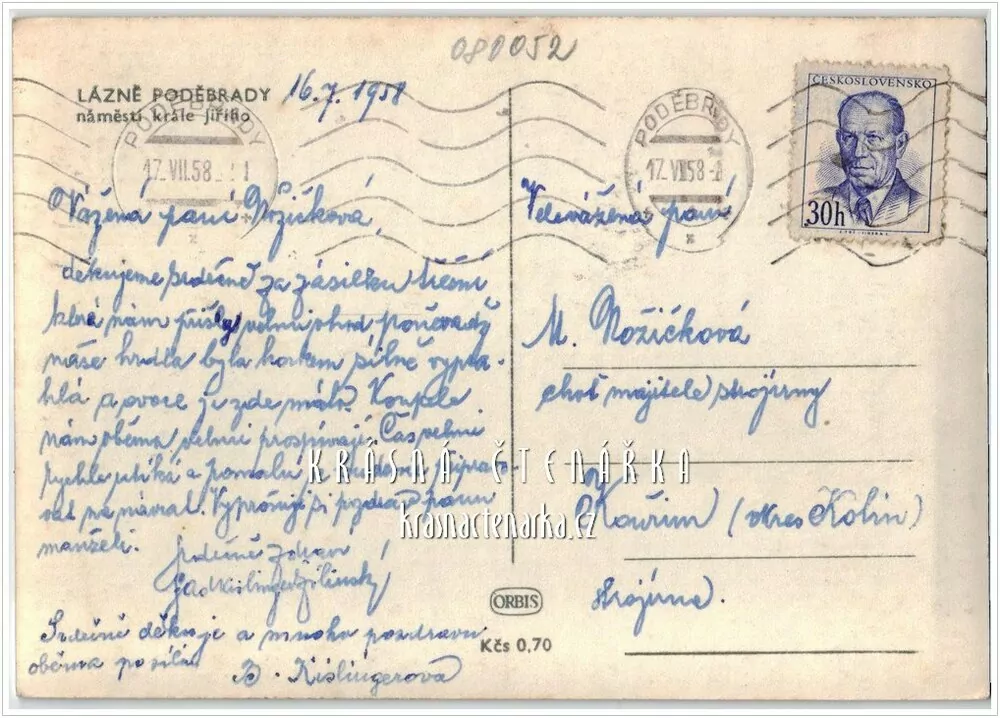 080052
LÁZNĚ PODĚBRADY
náměstí krále Jiřího
16.7. 1958
PODĚBRADY
17. VII.58
PODĚBRADY
17. VII.58
ČESKOSLOVENSKO
30h
Vážená paní Nožičková,
děkujeme srdečně za zásilku třešní
které nám přišly velmi vhod poněvadž
naše hrdla byla horkem silně vypra-
hlá a ovoce je zde málo. Koupele
nám oběma velmi prospívají. Čas velmi
rychle utíká a pomalu je budeme připra-
vovat na návrat. Vyprošuji si pozdrav panu
manželi.
srdečně zdraví
Srdečně děkuje a mnoho pozdravů
oběma posílá
B. Kislingerová
Velevážená paní
M. Nožičková
choť majitele strojírny
Kouřim (okres Kolín)
strojírna.
KRÁSNÁ ČTENÁŘKA
krasnactenarka.cz
ORBIS
Kčs 0,70